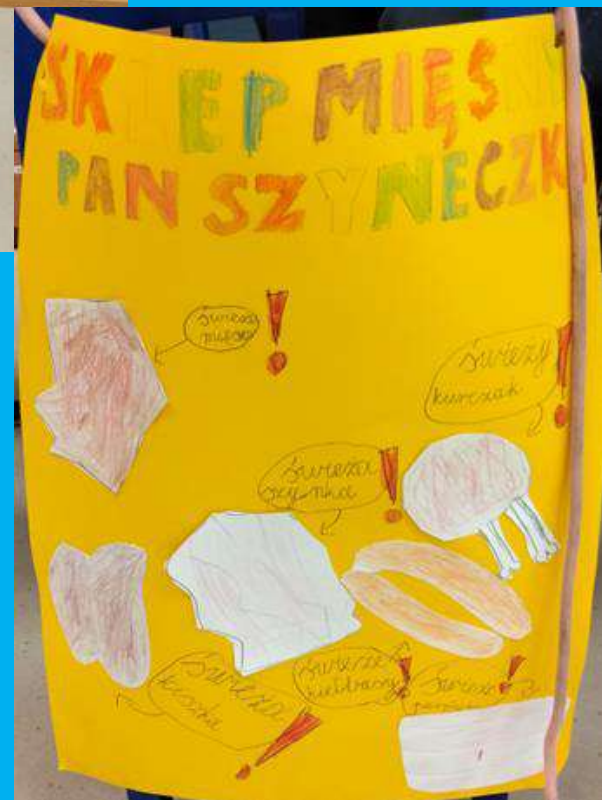 SKLEP MIĘSNY
PAN SZYNECZKA
świeże
mięso
!
świeży
kurczak
!
świeża
szynka
!
świeża
kiszka
!
świeże
kiełbasy
!
świeża
!